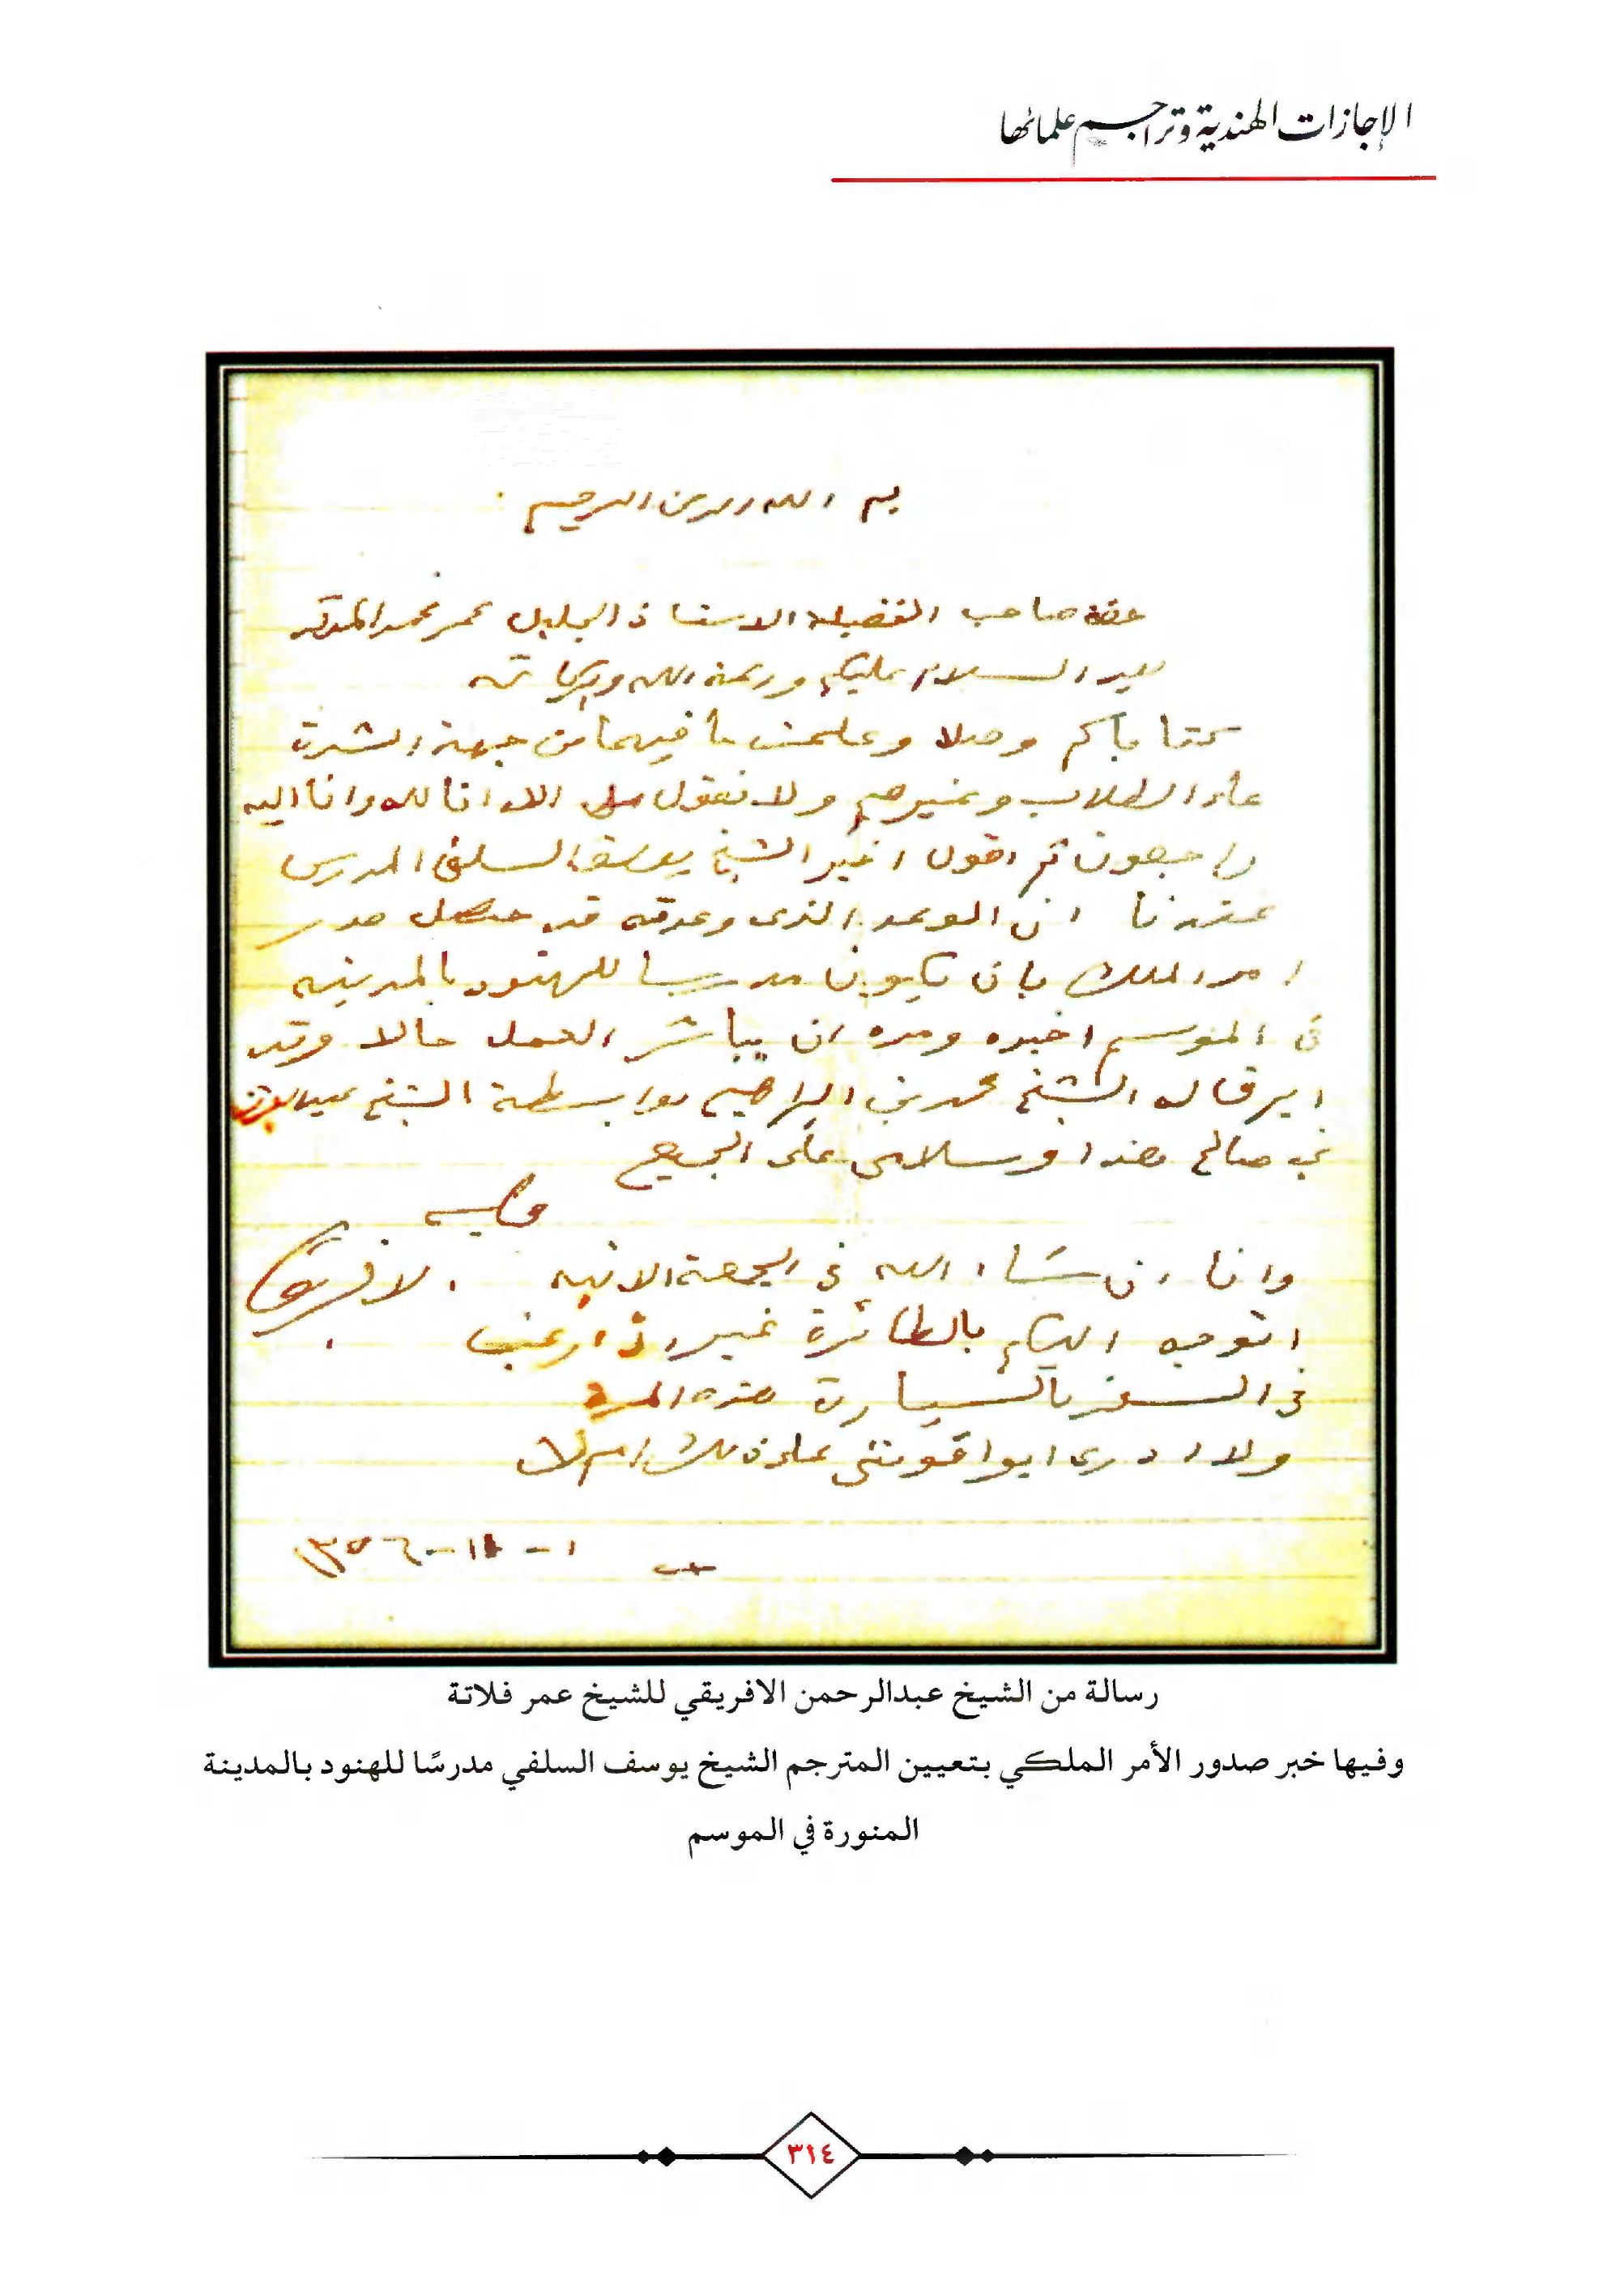 الإجازات الهندية وتراجم علمائها
بسم الله الرحمن الرحيم
حضرة صاحب الفضيلة الاستاذ الجليل عمر محمد
السلام عليكم ورحمة الله وبركاته
كتاباكم وصلا وعلمت ما فيهما من جهة الشدة
على الطلاب وغيرهم ولا نقول الا انا لله وانا اليه
راجعون ثم اقول اخبر الشيخ يوسف السلفي المدرس
عندنا ان الوعد الذي وعدته قد حصل صدر
امر الملك بان يكون مدرسا للهنود بالمدينه
في الموسم اخبره ومره ان يباشر العمل حالا وقد
ابرق له الشيخ محمد بن ابراهيم بواسطة الشيخ عبدالعزيز
بن صالح هذا وسلامي على الجميع
وانا ان شاء الله في الجمعة الاتيه
الافريقي
اتوجه اليكم بالطائرة غير اذ ارغب
في السفر بالسيارة هذه المرة
ولا ادري ايوافقونني على ذلك ام لا
١ - ١١ - ١٣٥٦
رسالة من الشيخ عبدالرحمن الافريقي للشيخ عمر فلاتة
وفيها خبر صدور الأمر الملكي بتعيين المترجم الشيخ يوسف السلفي مدرسًا للهنود بالمدينة
المنورة في الموسم
٣١٤